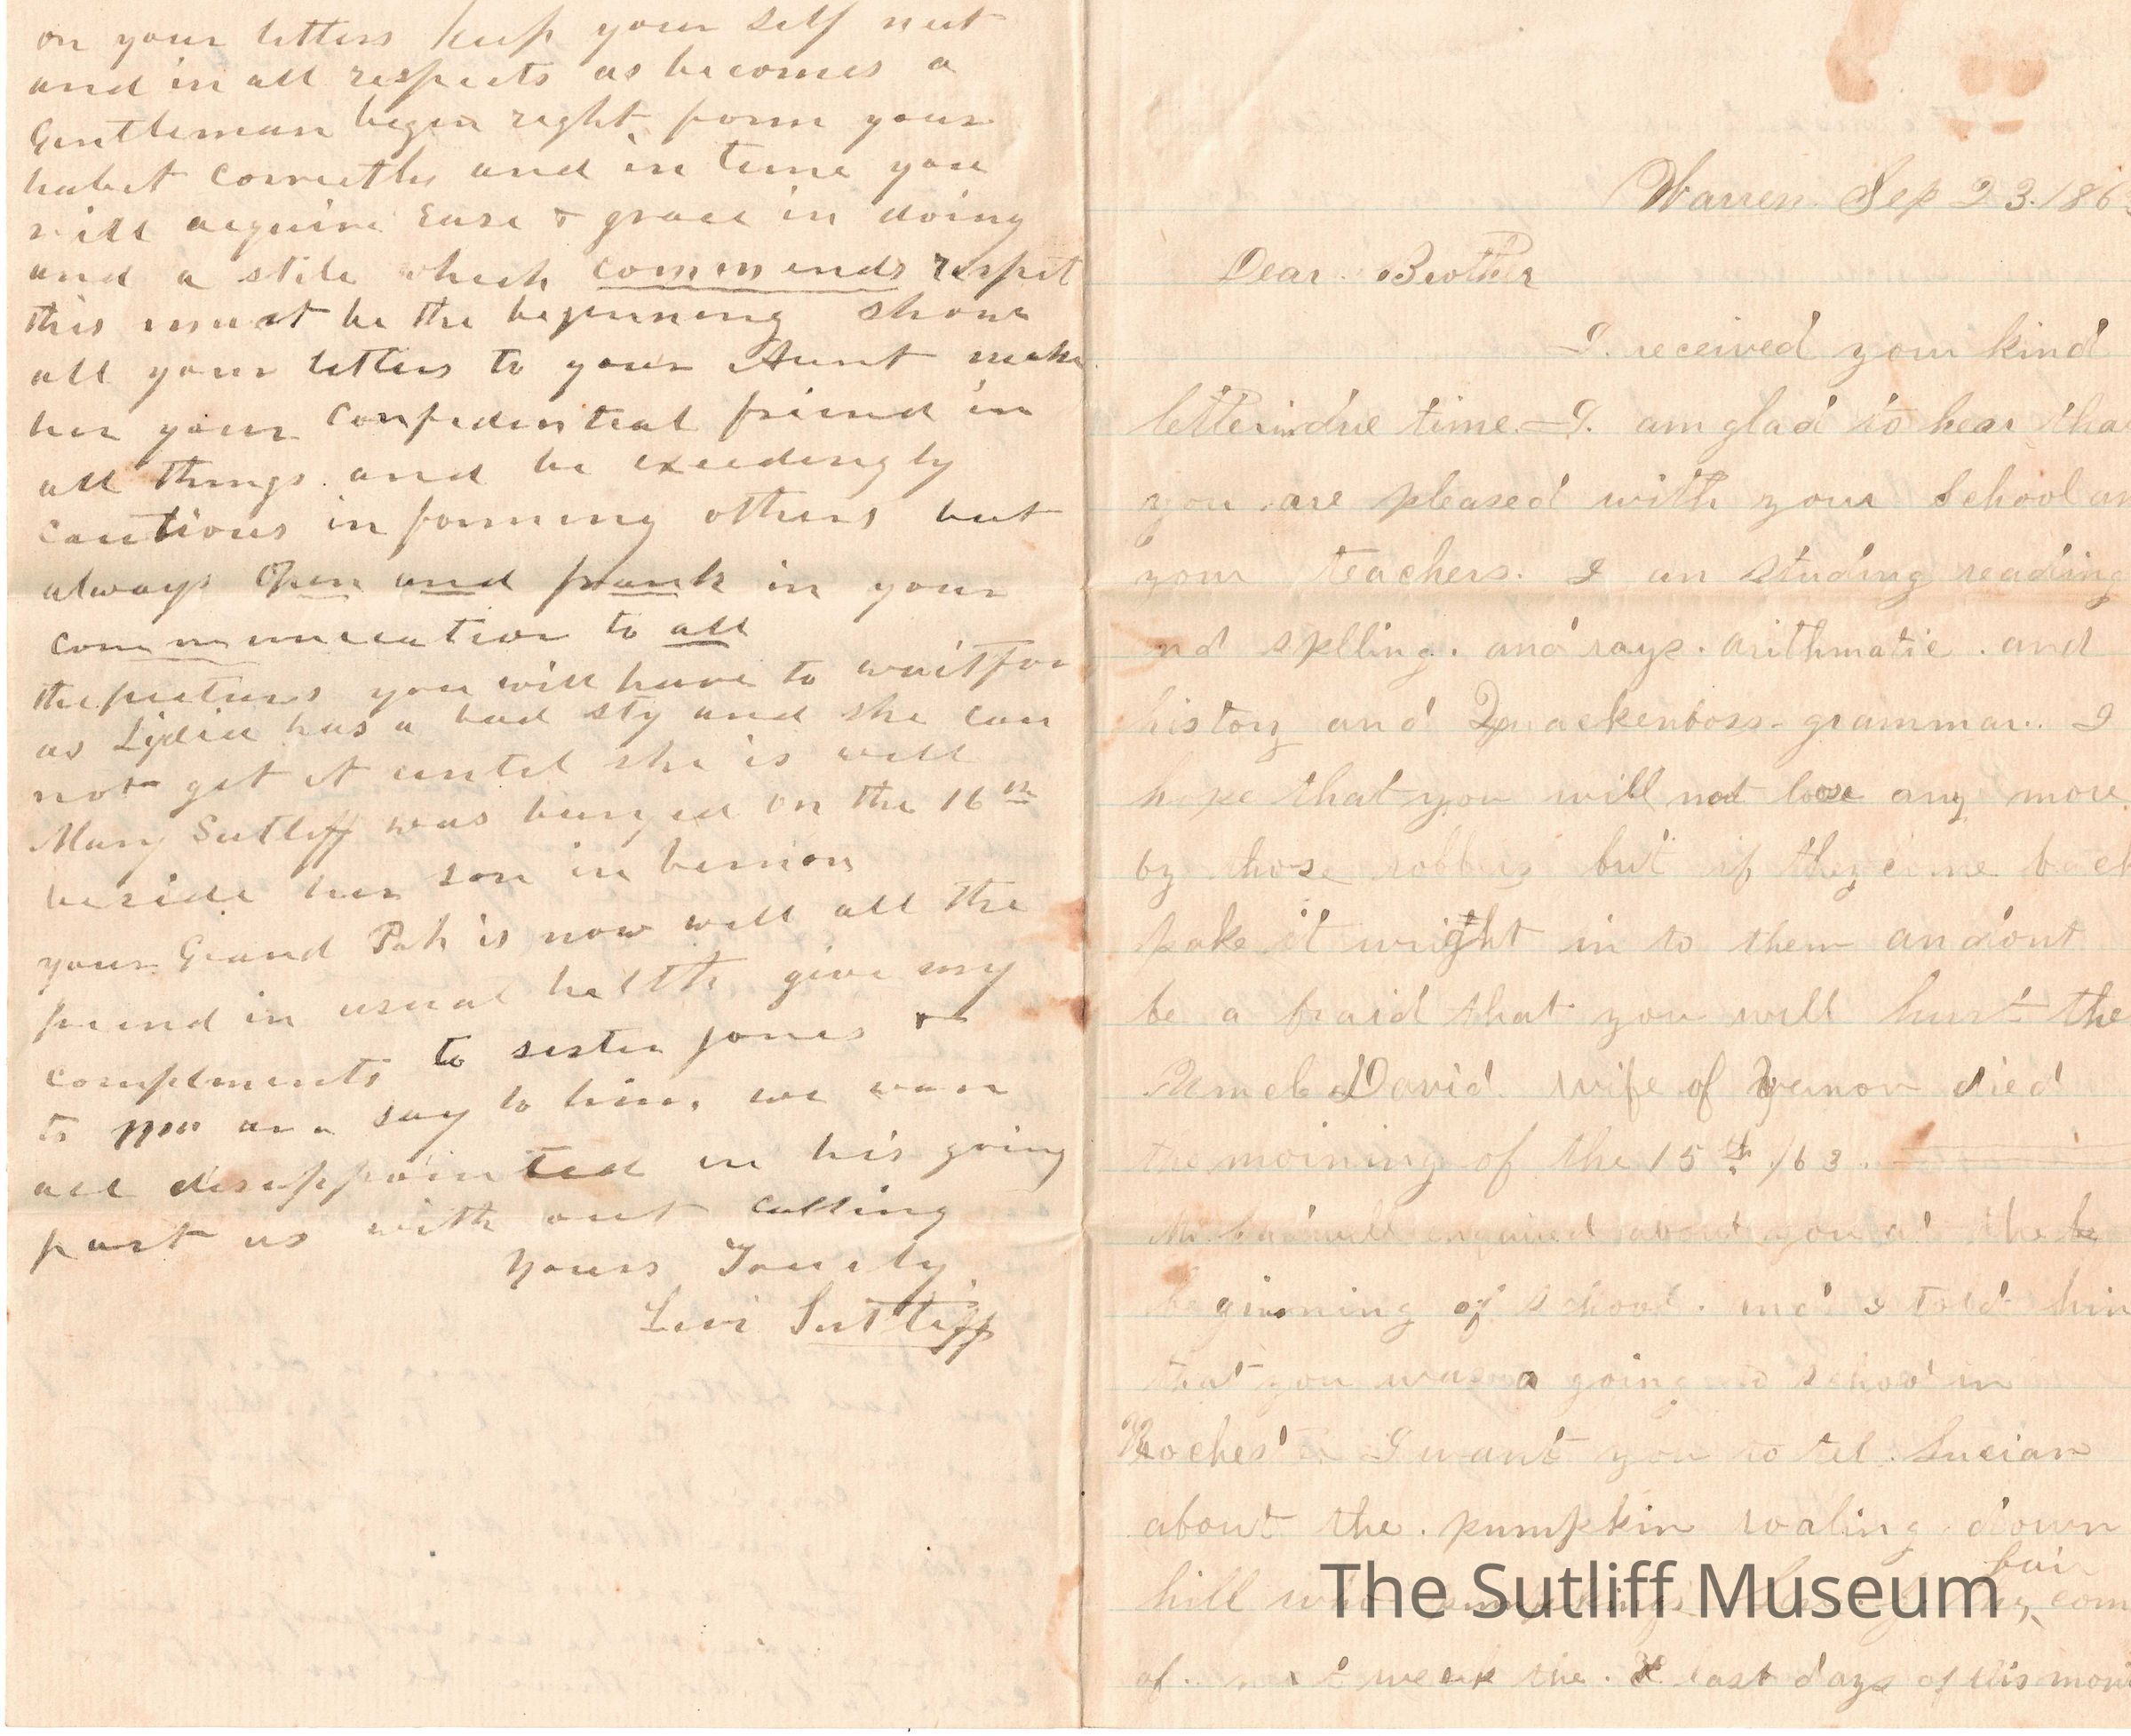 on your letters keep your self neet
and in all respects as becomes a
Gentleman begin right form your
habit correctly and in time you
will acquire Ease & grace in doing
and a stile which commends respit
this must be the beginning show
all your letters to your Aunt make
her your confidential friend in
all things and be exceedingly
cautious in forming others but
always Open and frank in your
communication to all
the pictures you will have to wait for
as Lydia has a bad sty and she can
not get it until she is well
Mary Sutliff was buryed on the 16th
beside her son in
your Grand Pah is now well all the
friend in usual helth give my
complements to sister Jones &
to say to him, we was
all disappointed in his going
past us with out calling
Yours Truely
Levi Sutliff
Warren. Sep 23. 186
Dear Brother
I. received your kind
letter in due time. I. am glad to hear tha
you are pleased with your School an
your teachers. I an studing reading
nd spelling. and rays. arithmatic. and
history and Quackenboss grammar. I
hope that you will not loose any more
by those robbers but if they come back
poke it wright in to them an dont
be a fraid that you will hurt the
David wife of Vernon died
the morning of the 15th /63.
enquired about you at the be
beginning of school. and I told him
that you was a going to school in
Rochester I want you to tel. Lucian
about the. pumpkin roaling down
hill fair
The Sutliff Museum
com
of. next week the. last days of this mon